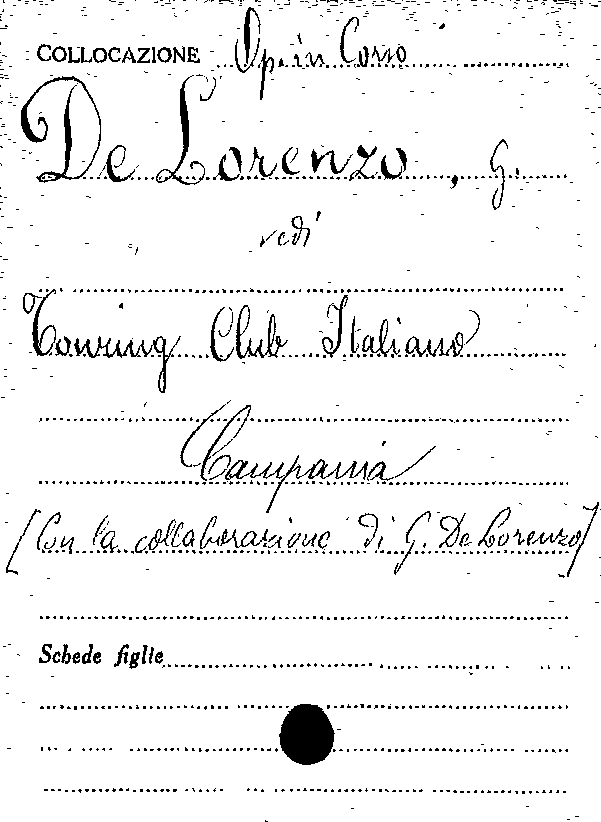 COLLOCAZIONE Op. in Corso
De Lorenzo, G.
vedi
Touring Club Italiano
Campania
[Con la collaborazione di G. De Lorenzo]
Schede figlie